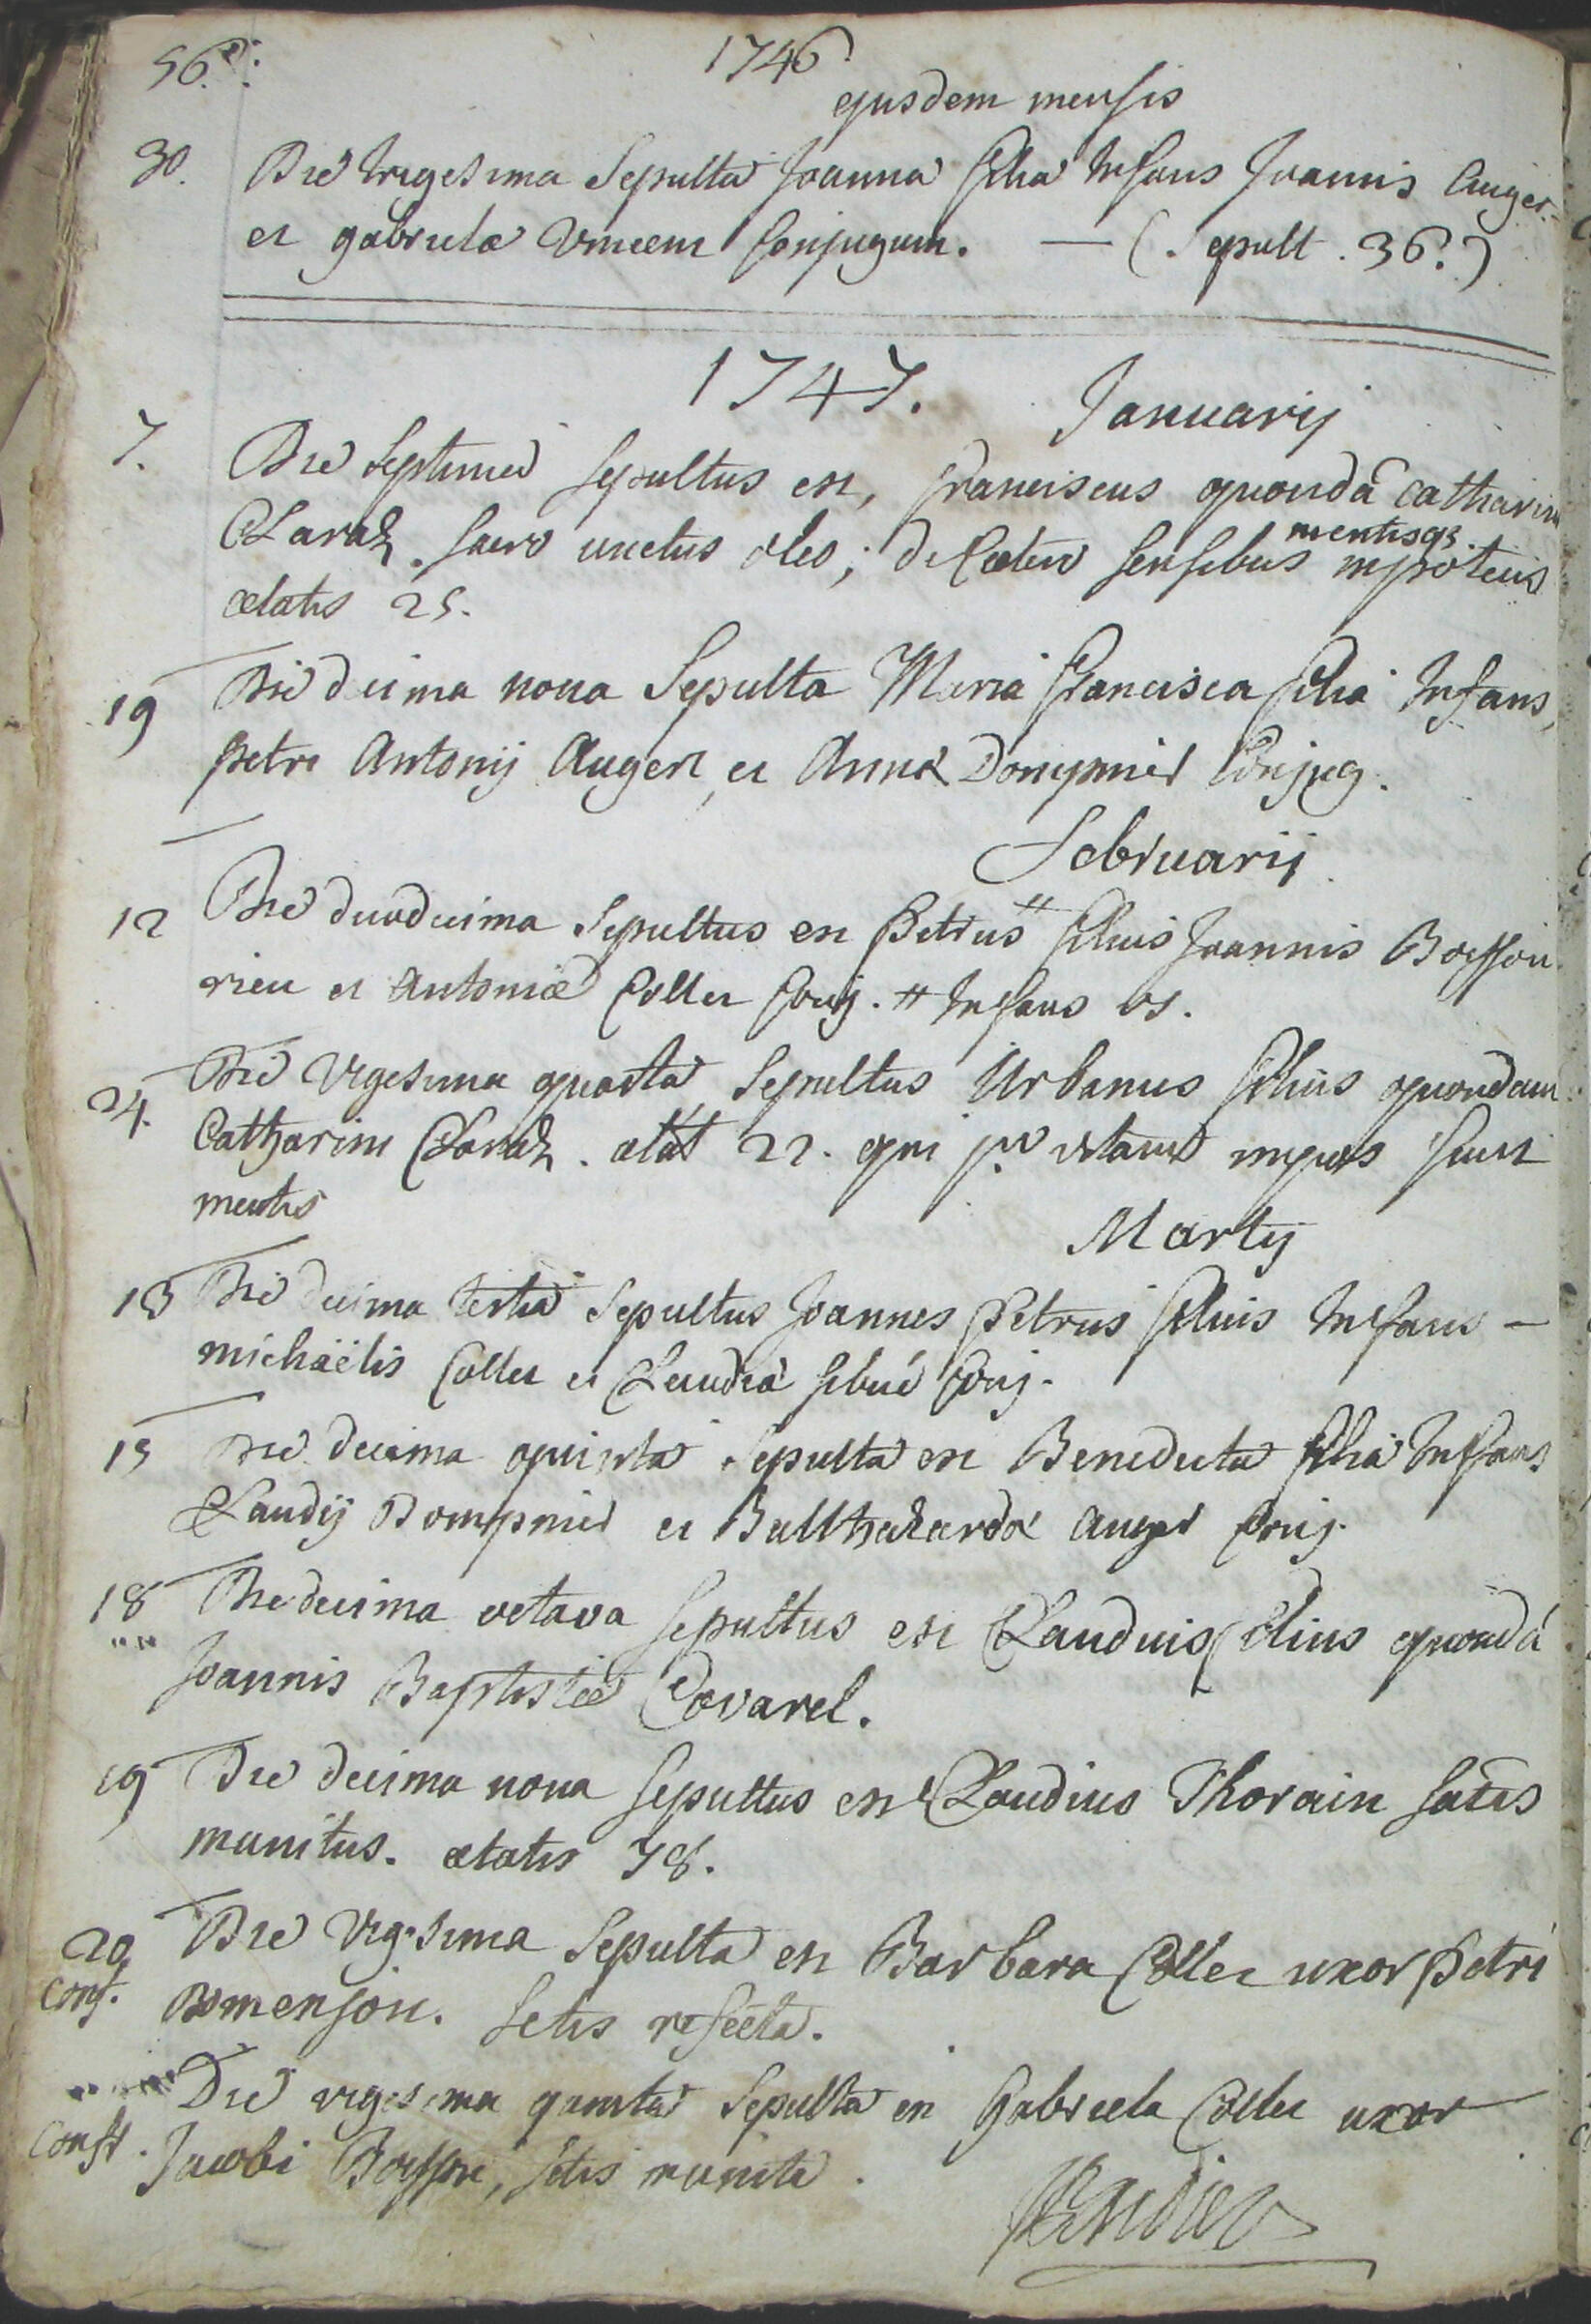 56.
1746
ejusdem mensis
30. Die trigesima Sepulta Joanna filia Infans Joannis Auger
et gabrielæ Vincent Conjugum. — (Sepult. 36.)
1747.
Januarij
7. Die Septima sepultus est, franciscus quondā Catharini
Claraz. sacro unctus oleo; de Cætero sensibus mentisqs. impotens
ætatis 25.
19 Die decima nona Sepulta Maria Francisca filia Infans,
petri Antonij Auger, et Annæ Dompmier Conjug.
Februarij
12 Die duodecima Sepultus est Petrus # filius Joannis Boisson
rieu et Antoniæ Collet Conj. # Infans
24. Die Vigesima quarta Sepultus Urbanus filius quondam
Catharini Claraz. ætat 22. qui impos fuit
mentis
Martij
13 Die decima tertia Sepultus Joannes Petrus filius Infans —
michaëlis Collet et Claudiæ Sibué Conj.
15 Die decima quinta Sepulta est Benedicta filia Infans
Claudij Dompmier et Balthazardæ Auger Conj.
18 Die decima octava sepultus est Claudius filius quondā
Joannis Baptistæ Covarel.
19 Die decima nona sepultus est Claudius Thorain satis
munitus. ætatis 78.
20 Die Vigesima Sepulta est Barbara Collet uxor Petri
conf. Domenjon. Sctis refecta.
Die vigesima quinta Sepulta est Gabriela Collet uxor
Conft. Jacobi Boisson, sctis munita.